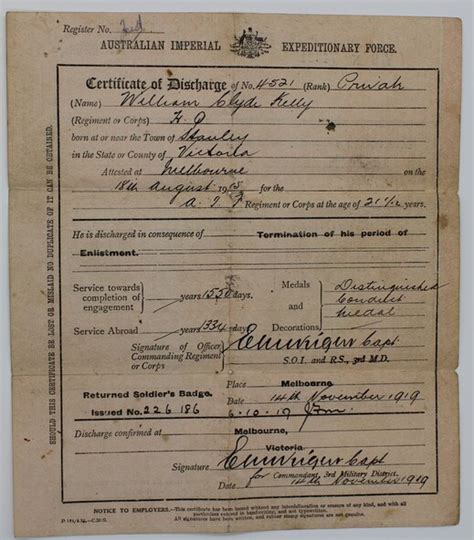 Register No.
AUSTRALIAN IMPERIAL EXPEDITIONARY FORCE.
Certificate of Discharge of No. 4521 (Rank) Private
(Name) William Clyde Kelly
(Regiment or Corps)
born at or near the Town of Stanley
in the State or County of Victoria
Attested at Melbourne
18th August 1915 for the
A.I.F Regiment or Corps at the age of 21 1/12 years.
He is discharged in consequence of Termination of his period of
Enlistment.
Service towards completion of engagement years 1550 days.
Service Abroad years 1334 days.
Medals and Decorations Distinguished Conduct Medal
Signature of Officer Commanding Regiment or Corps Capt
S.O.I. and R.S., 3rd M.D.
Place Melbourne.
Returned Soldier's Badge. Date 14th November 1919
Issued No. 226186 6.10.19
Discharge confirmed at Melbourne,
Victoria
Signature Capt
for Commandant, 3rd Military District.
Date 14th November 1919
NOTICE TO EMPLOYERS.—This certificate has been issued without any interlineation or erasure of any kind, and with all
particulars entered in handwriting, and not typewritten.
All signatures have been written, and rubber stamp signatures are not genuine.
SHOULD THIS CERTIFICATE BE LOST OR MISLAID NO DUPLICATE OF IT CAN BE OBTAINED.